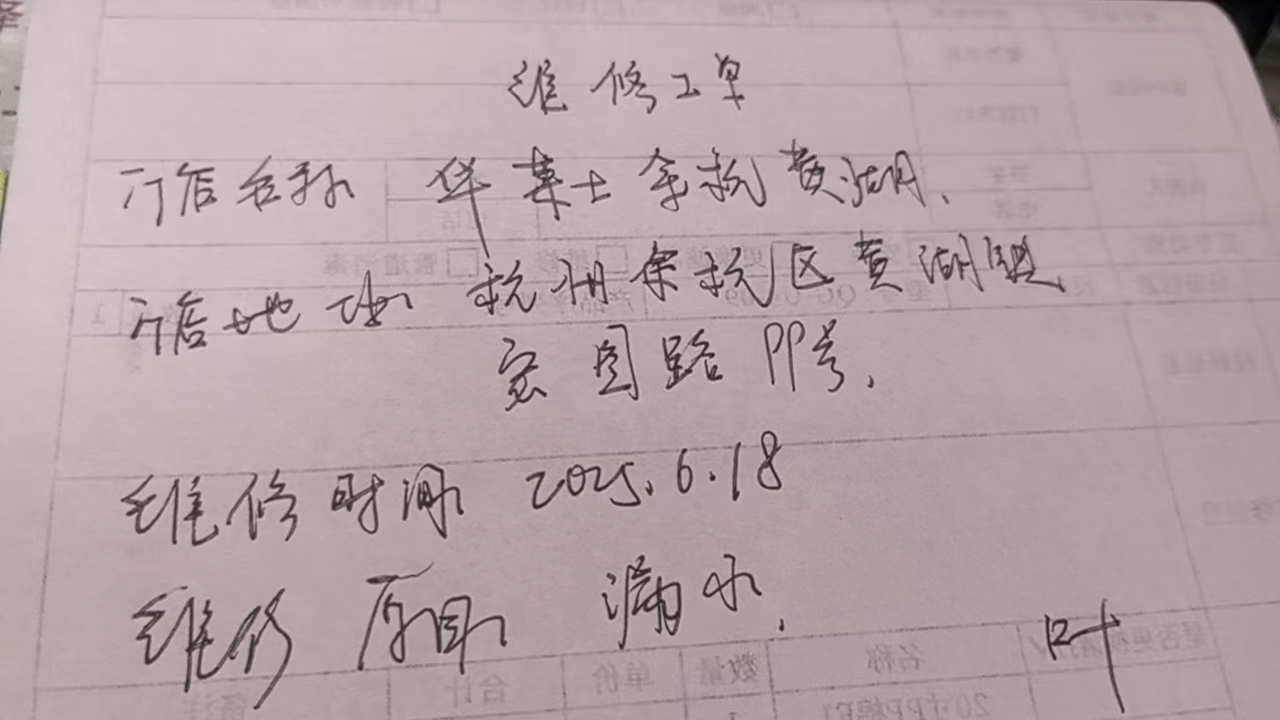 维修工单
门店名称 华莱士余杭黄湖.
门店地址 杭州余杭区黄湖镇
路 PP号.
维修时间 2025.6.18
维修原因 漏水.
叶
是否更换消 名称 数量 单价 合计 备注